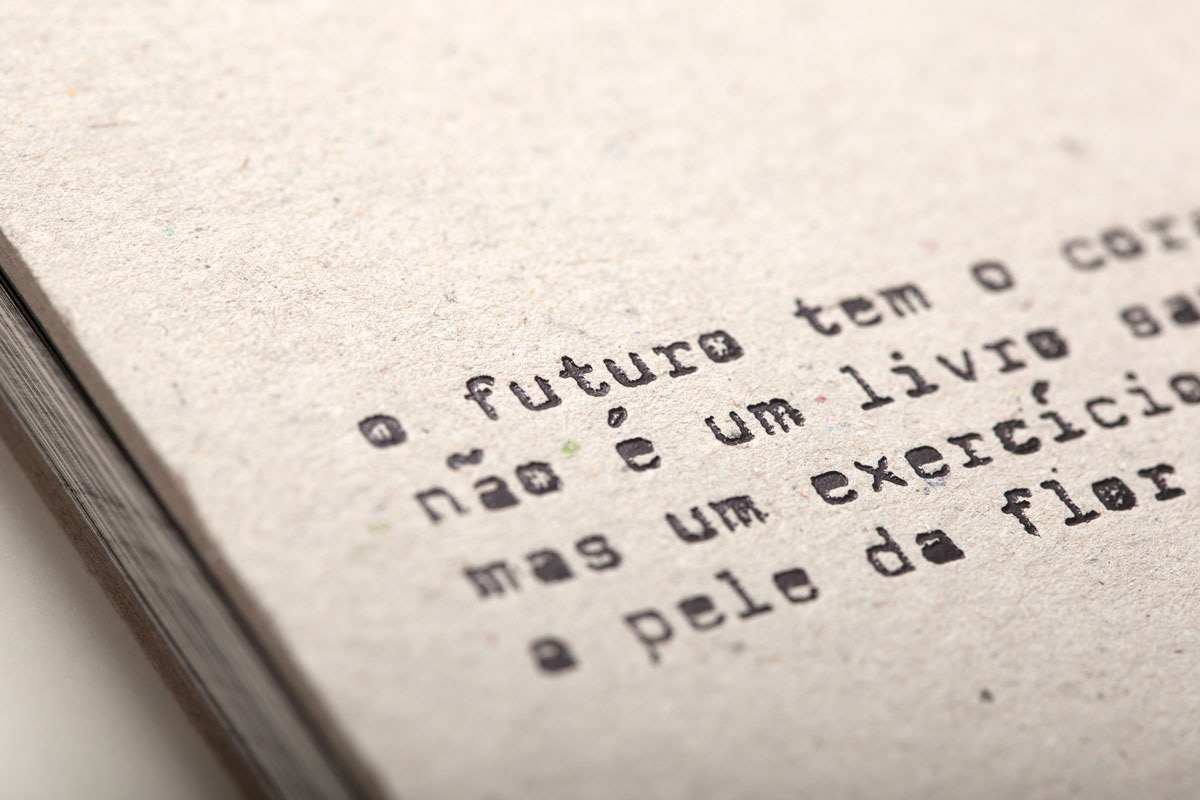 o futuro tem o
não é um livro
mas um exercício
a pele da flor